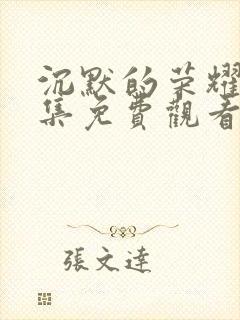 沉默的荣耀
集免費觀看
張文達